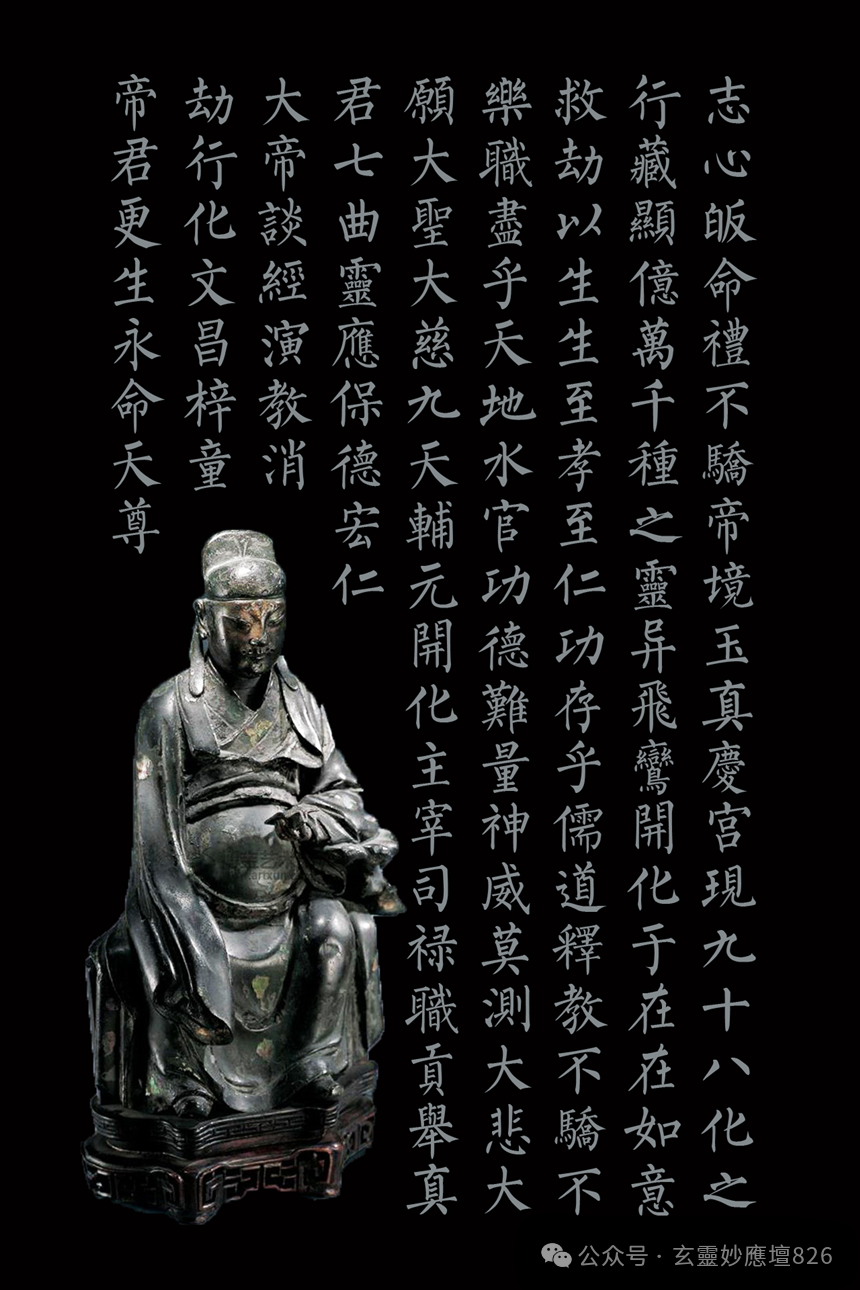 志心皈命禮不驕帝境玉真慶宮現九十八化之
行藏顯億萬千種之靈异飛鸞開化于在在如意
救劫以生生至孝至仁功存乎儒道釋教不驕不
樂職盡乎天地水官功德難量神威莫測大悲大
願大聖大慈九天輔元開化主宰司禄職貢舉真
君七曲靈應保德宏仁
大帝談經演教消
劫行化文昌梓童
帝君更生永命天尊
公众号·玄靈妙應壇826